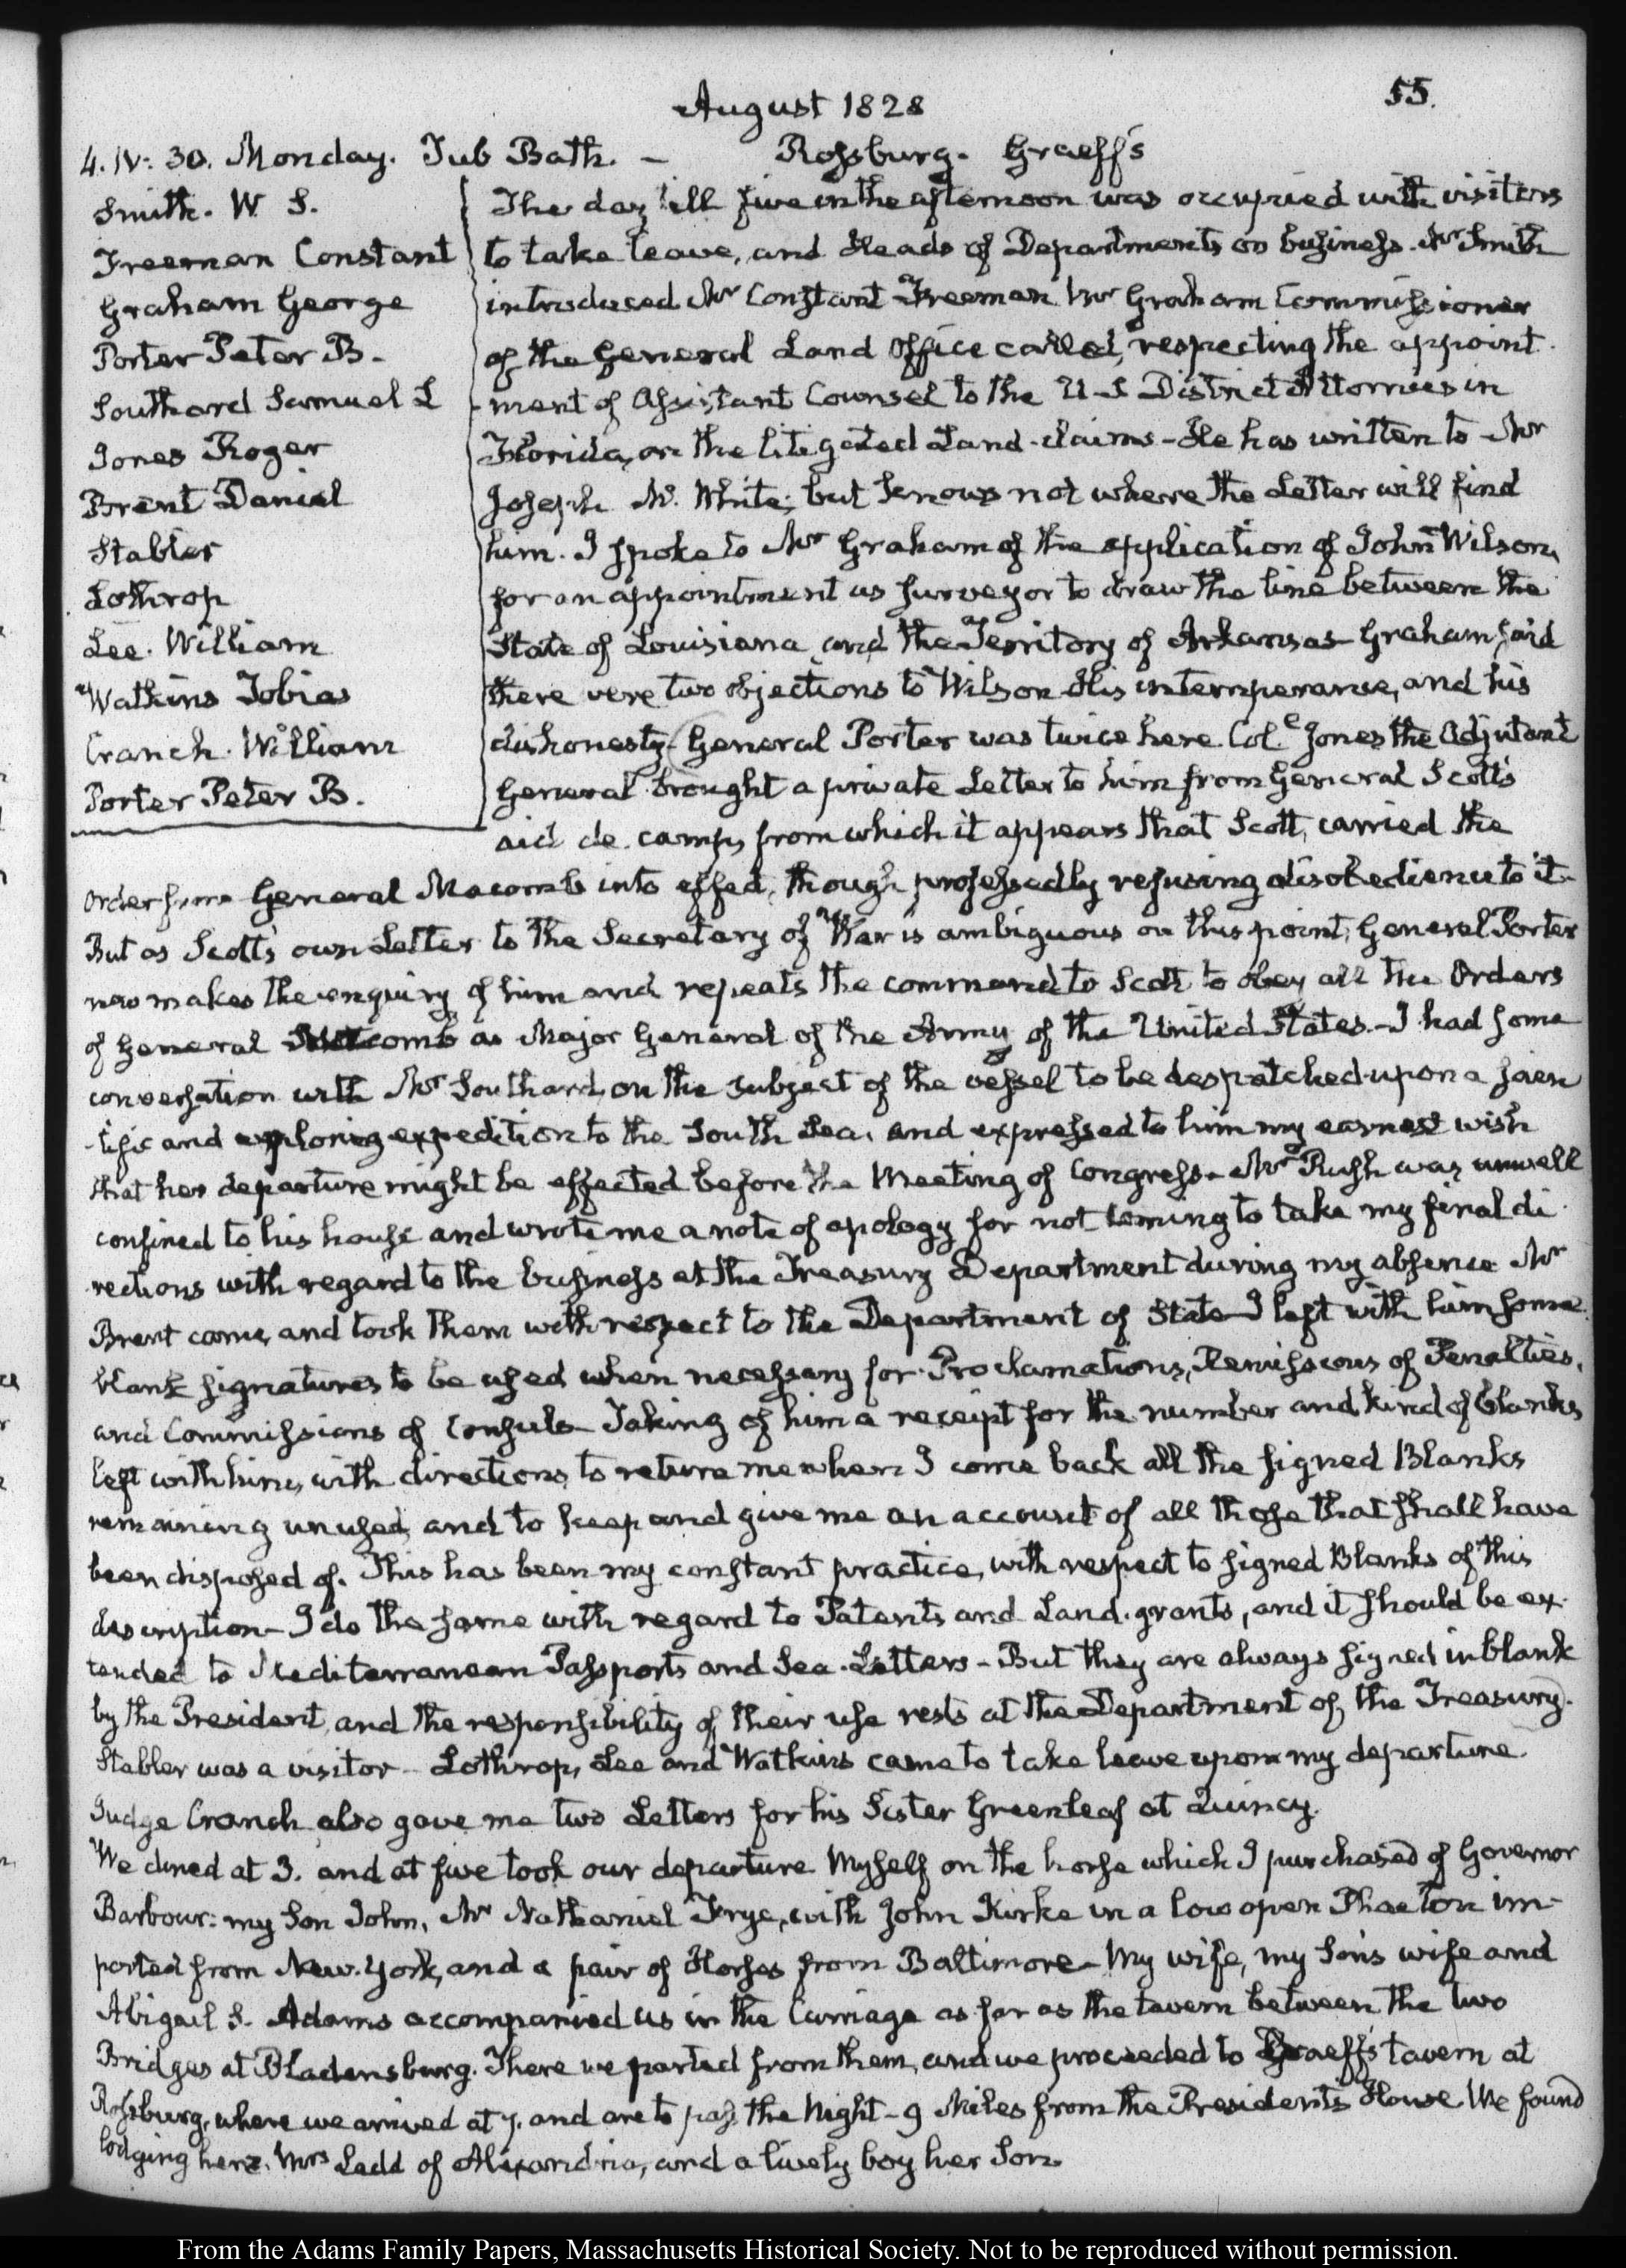 55.
August 1828
4. IV: 30. Monday. Tub Bath. – Rossburg. Graeff's
Smith. W. S.
Freeman Constant
Graham George
Porter Peter B.
Southard Samuel L
Jones Roger
Brent Daniel
Stabler
Lothrop
Lee. William
Watkins Tobias
Cranch. William
Porter Peter B.
The day till five in the afternoon was occupied with visiters
to take leave, and Heads of Departments on business. Mr Smith
introduced Mr Constant Freeman Mr Graham Commissioner
of the General Land Office called, respecting the appoint-
ment of Assistant Counsel to the U.S District Attornies in
Florida, on the litigated Land-claims – He has written to Mr
Joseph M. White; but knows not where the Letter will find
him. I spoke to Mr Graham of the application of John Wilson,
for an appointment as Surveyor to draw the line between the
State of Louisiana and the Territory of Arkansas – Graham said
there were two objections to Wilson His intemperance, and his
dishonesty – General Porter was twice here. Col. Jones the Adjutant
General brought a private Letter to him from General Scott's
aid de camp, from which it appears that Scott, carried the
order from General Macomb into effect, though professedly refusing disobedience to it –
But as Scott's own Letter to the Secretary of War is ambiguous on this point, General Porter
now makes the enquiry of him and repeats the command to Scott to obey all the Orders
of General Macomb as Major General of the Army of the United States. – I had some
conversation with Mr Southard, on the subject of the vessel to be despatched upon a scien
tific and exploring expedition to the South Sea, and expressed to him my earnest wish
that her departure might be effected before the Meeting of Congress – Mr Rush was unwell
confined to his house and wrote me a note of apology for not coming to take my final di-
rections with regard to the business at the Treasury Department during my absence Mr
Brent came, and took them with respect to the Department of State – I left with him some
blank signatures to be used when necessary for Proclamations, Remissions of Penalties,
and Commissions of Consuls – Taking of him a receipt for the number and kind of blanks
left with him, with directions to return me when I come back all the signed Blanks
remaining unused, and to keep and give me an account of all those that shall have
been disposed of. This has been my constant practice, with respect to signed Blanks of this
description – I do the same with regard to Patents and Land-grants, and it should be ex-
tended to Mediterranean Passports and Sea-Letters – But they are always signed in blank
by the President, and the responsibility of their use rests at the Department of the Treasury.
Stabler was a visitor – Lothrop, Lee and Watkins came to take leave upon my departure.
Judge Cranch also gave me two Letters for his Sister Greenleaf at Quincy.
We dined at 3. and at five took our departure Myself on the horse which I purchased of Governor
Barbour: my Son John, Mr Nathaniel Frye, with John Kirke in a low open Phaeton im-
ported from New-York, and a pair of Horses from Baltimore – My wife, my Son's wife and
Abigail S. Adams accompanied us in the Carriage as far as the tavern between the two
Bridges at Bladensburg. There we parted from them, and we proceeded to Graeff's tavern at
Rossburg, where we arrived at 7. and are to pass the Night – 9 Miles from the President's House We found
lodging here. Mrs Ladd of Alexandria, and a lively boy her Son.
From the Adams Family Papers, Massachusetts Historical Society. Not to be reproduced without permission.